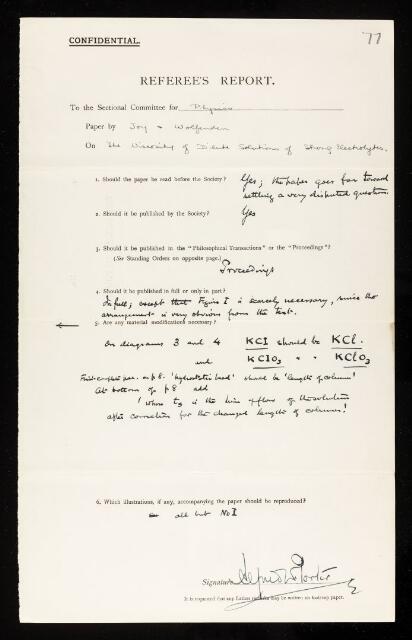 77
CONFIDENTIAL.
REFEREE'S REPORT.
To the Sectional Committee for Physics
Paper by Joy & Wolfenden
On The Viscosity of Dilute Solutions of Strong Electrolytes.
1. Should the paper be read before the Society? Yes; the paper goes far toward
settling a very disputed question
2. Should it be published by the Society? Yes
3. Should it be published in the "Philosophical Transactions" or the "Proceedings"?
(See Standing Orders on opposite page.)
Proceedings
4. Should it be published in full or only in part?
In full; except that Figure I is scarcely necessary, since the
arrangement is very obvious from the text.
5. Are any material modifications necessary?
On diagrams 3 and 4 KCI should be KCl.
and KClO3 " " KClO3
First complete para. on p 8. 'hydrostatic head' should be 'length of column'
At bottom of p 8 add
'where t3 is the time of flow of the solution
after correction for the changed length of column!'
6. Which illustrations, if any, accompanying the paper should be reproduced?
all but No I
Signature Alfred W Porter
It is requested that any further remarks may be written on foolscap paper.